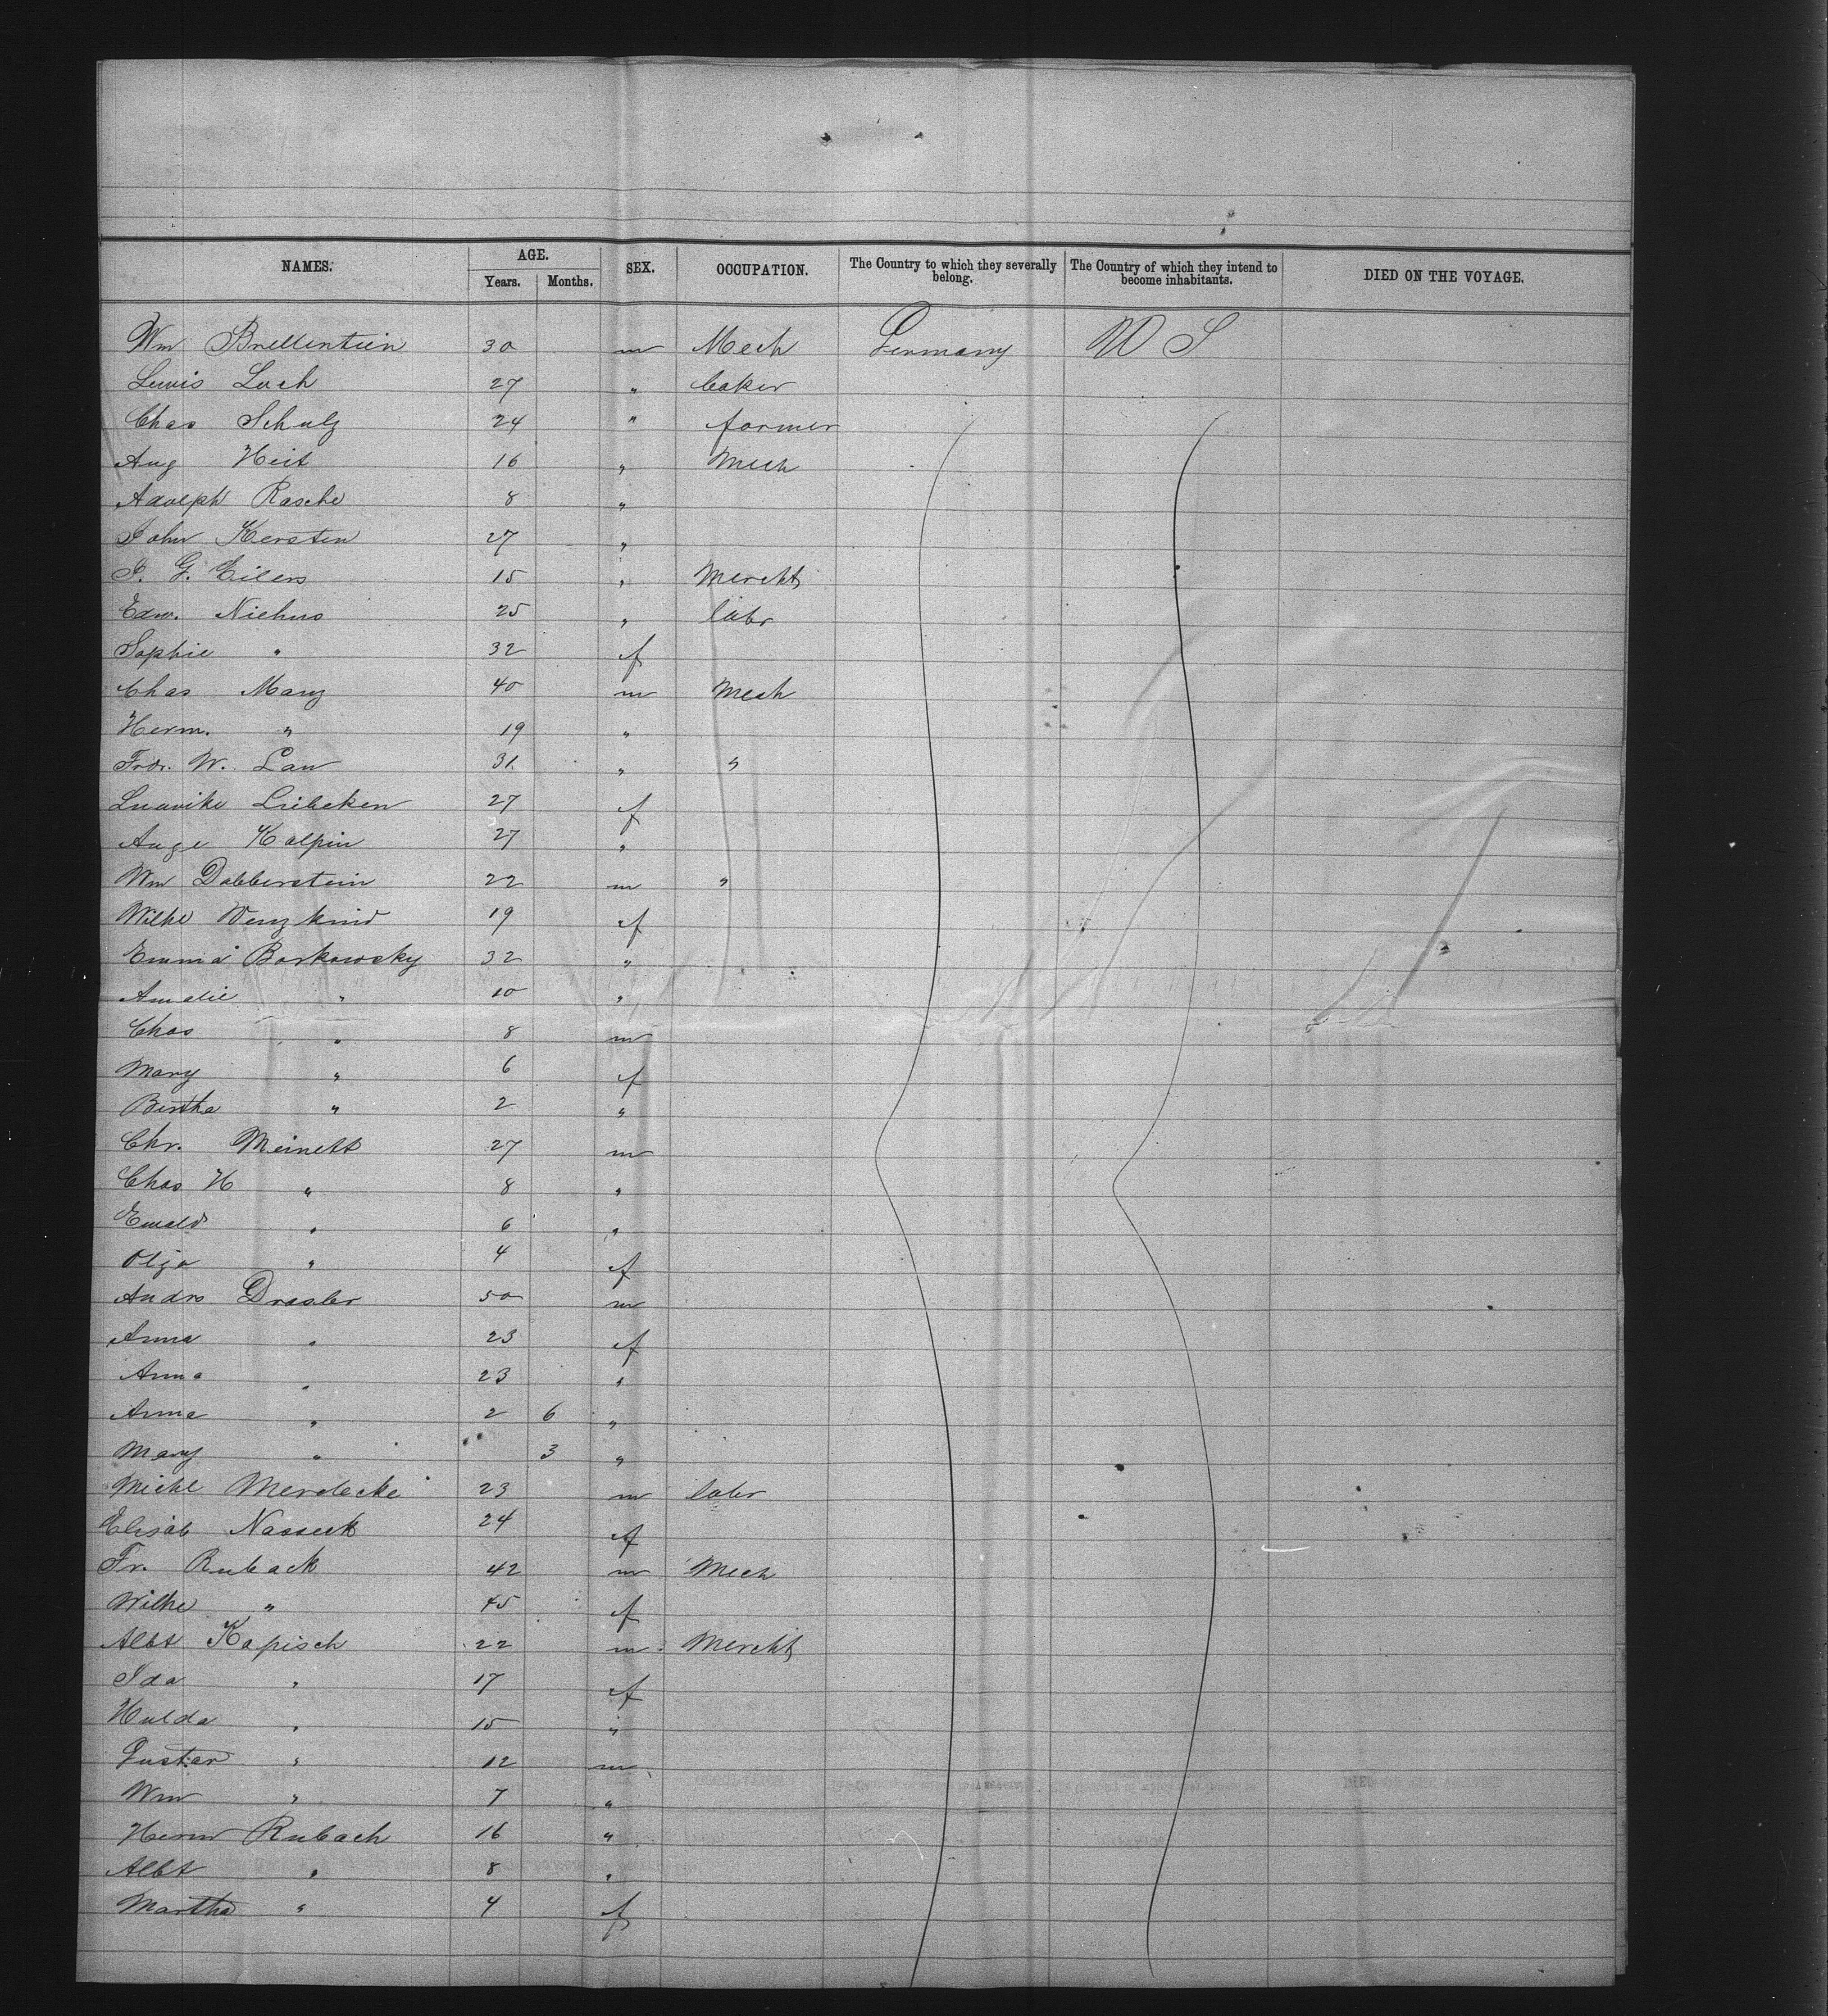 NAMES. AGE. SEX. OCCUPATION. The Country to which they severally belong. The Country of which they intend to become inhabitants. DIED ON THE VOYAGE.
Years. Months.
Wm Brellentien 30 m Mech Germany U S
Lewis Loch 27 " baker
Chas Schulz 24 " farmer
Aug Heit 16 " Mech
Adolph Rasche 8 "
John Kersten 27 "
J. G. Eilers 15 " Mercht
Edw. Niehus 25 " labr
Sophie " 32 f
Chas Manz 40 m Mech
Herm. " 19 "
Frdr. W. Lau 31 " "
Ludwike Liebeken 27 f
Auge Kalpin 27 "
Wm Dabberstein 22 m "
Wilhe Wenzkind 19 f
Emma Borkowsky 32 "
Amalie " 10 "
Chas " 8 m
Mary " 6 f
Bertha " 2 "
Chr. Meinett 27 m
Chas H " 8 "
Ewald " 6 "
Olga " 4 f
Andrs Drasler 50 m
Anna " 23 f
Anna " 23 "
Anna " 2 6 "
Mary " 3 "
Michl Merdecke 23 m labr
Elisab Nasseck 24 f
Fr. Ruback 42 m Mech
Wilhe " 45 f
Albt Kopisch 22 m Mercht
Ida " 17 f
Hulda " 15 "
Gustav " 12 m
Wm " 7 "
Herm Rubach 16 "
Albt " 8 "
Martha " 4 f